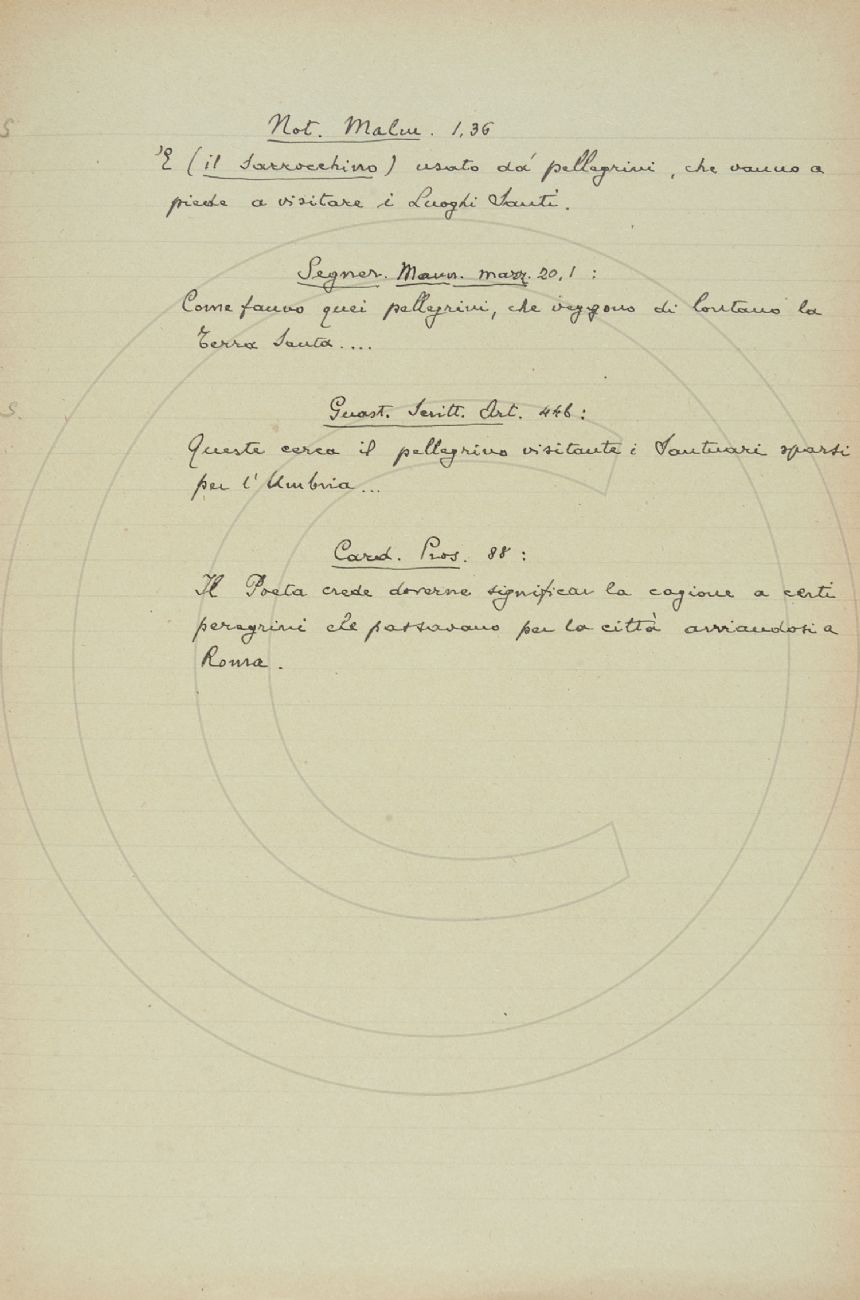 Not. Malm. 1,36
È (il sarrocchino) usato da' pellegrini, che vanno a
piede a visitare i Luoghi Santi.
Segner. Mann. marz. 20,1:
Come fanno quei pellegrini, che veggono di lontano la
Terra Santa....
Guast. Scritt. Art. 446:
Queste cerca il pellegrino visitante i Santuari sparsi
per l'Umbria...
Card. Pros. 88:
Il Poeta crede doverne significar la cagione a certi
peregrini che passavano per la città avviandosi a
Roma.